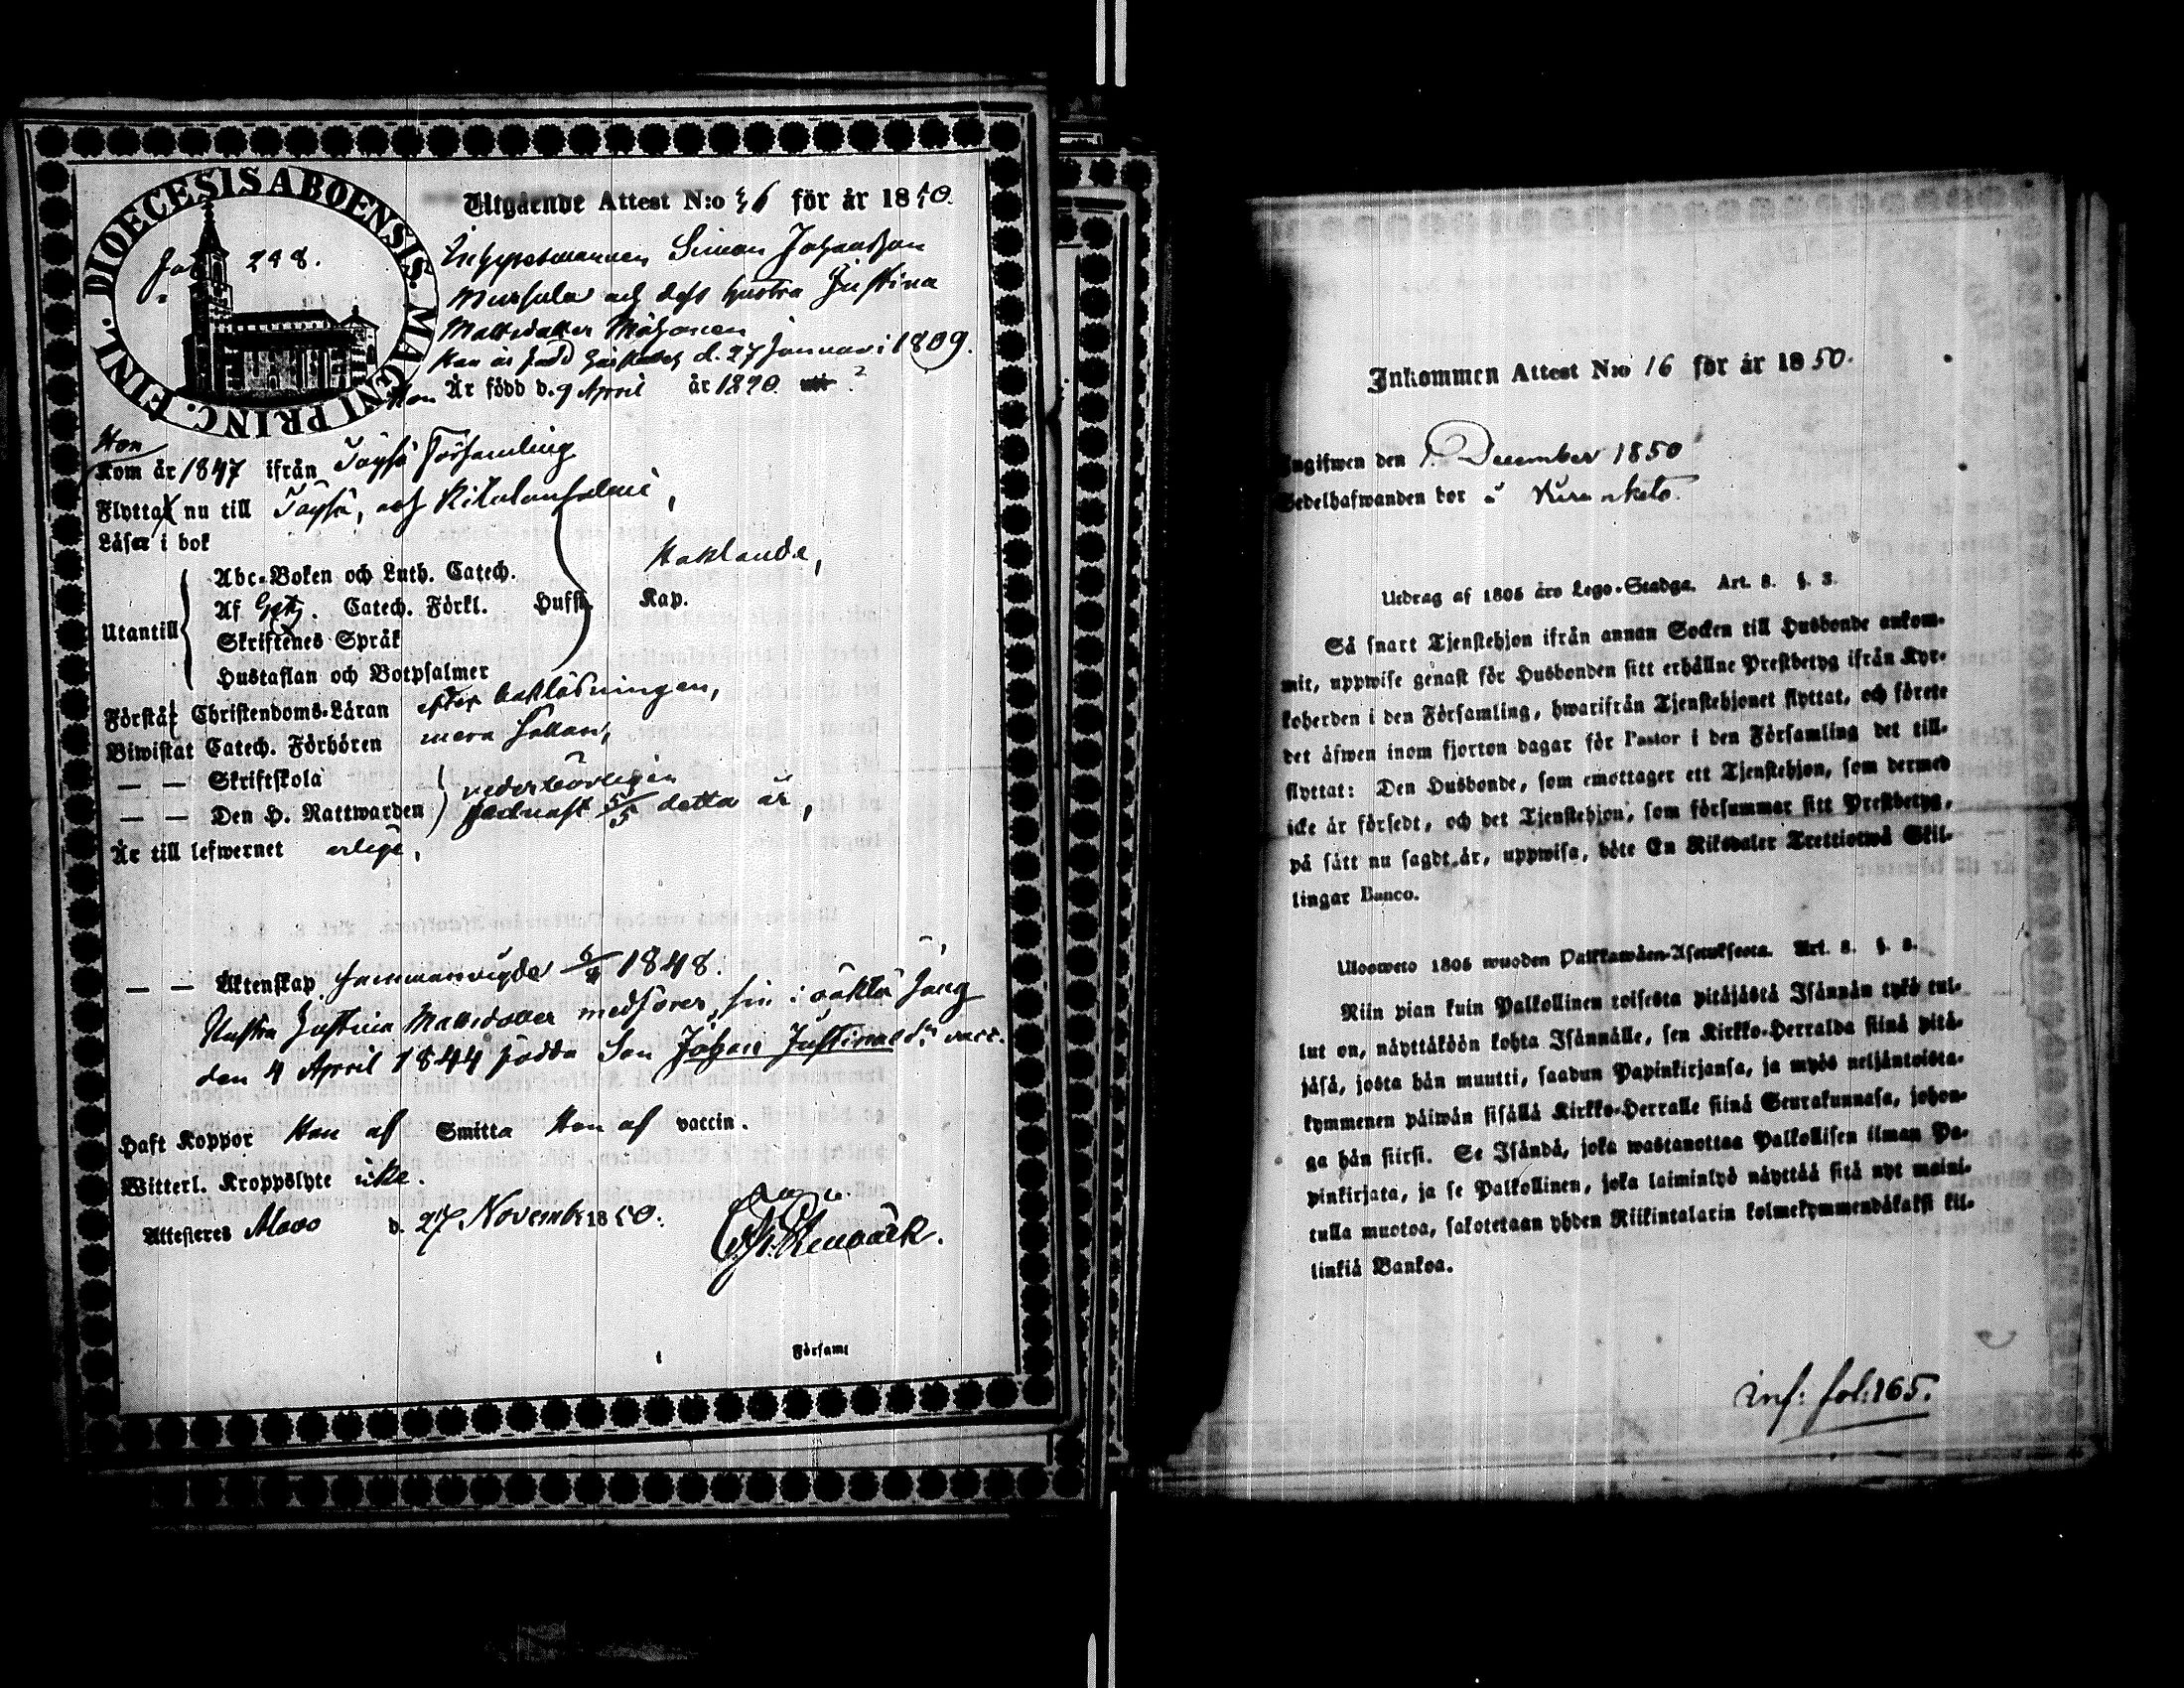 DIOECESIS ABOENSIS. MAGNI PRINC. FINL.
fol 248.
Utgående Attest N:o 36 för år 1850.
Inhysesmannen Simon Johansson
och dess hustru Justina
Mattsdotter
Han är född här d. 27 Januari 1809.
Hon Är född d. 9 April år 1820.
Hon
Kom år 1847 ifrån Töysä Församling
Flyttar nu till Töysä, och
Läser i bok
Utantill
Abc-Boken och Luth. Catech.
Af Catech. Förkl. Hufst. Kap.
Skriftenes Språk
Hustaflan och Botpsalmer
Hoklande,
Förstår Christendoms-Läran efter bokläsningen,
Biwistat Catech. Förhören mera sällan,
— — Skriftskola vederbörligen
— — Den H. Nattwarden sednast 5/5 detta år,
Är till lefwernet ärlige,
— — Äktenskap sammanvigde 1848.
Hustru Justina Mattsdotter medförer sin i oäkta säng
den 4 April 1844 födda Son Johan
Haft Koppor Han af Smitta Hon af vaccin.
Witterl. Kroppslyte icke.
Attesteras Alavo d. 27 Novemb: 1850.
i Församl
Inkommen Attest N:o 16 för år 1850.
Ingifwen den 1. December 1850
Sedelhafwanden bor å
Utdrag af 1805 års Lego-Stadga. Art. 8. §. 3.
Så snart Tjenstehjon ifrån annan Socken till Husbonde ankom-
mit, uppwise genast för Husbonden sitt erhållne Prestbetyg ifrån Kyr-
koherden i den Församling, hwarifrån Tjenstehjonet flyttat, och förete
det äfwen inom fjorton dagar för Pastor i den Församling det till-
flyttat: Den Husbonde, som emottager ett Tjenstehjon, som dermed
icke är försedt, och det Tjenstehjon, som försummar sitt Prestbetyg,
på sätt nu sagdt är, uppwisa, böte En Riksdaler Trettiotwå Skil-
lingar Banco.
Ulosweto 1805 wuoden Palkkawäen-Asetuksesta. Art. 8. §. 3.
Niin pian kuin Palkollinen toisesta pitäjästä Isännän tykö tul-
lut on, näyttäköön kohta Isännälle, sen Kirkko-Herralda siinä pitä-
jäsä, josta hän muutti, saadun Papinkirjansa, ja myös neljäntoista-
kymmenen päiwän sisällä Kirkko-Herralle siinä Seurakunnasa, johon-
ga hän siirsi. Se Isändä, joka wastanottaa Palkollisen ilman Pa-
pinkirjata, ja se Palkollinen, joka laiminlyö näyttää sitä nyt maini-
tulla muotoa, sakotetaan yhden Riikintalarin kolmekymmendäkaksi kil-
linkiä Bankoa.
inf: fol: 165.